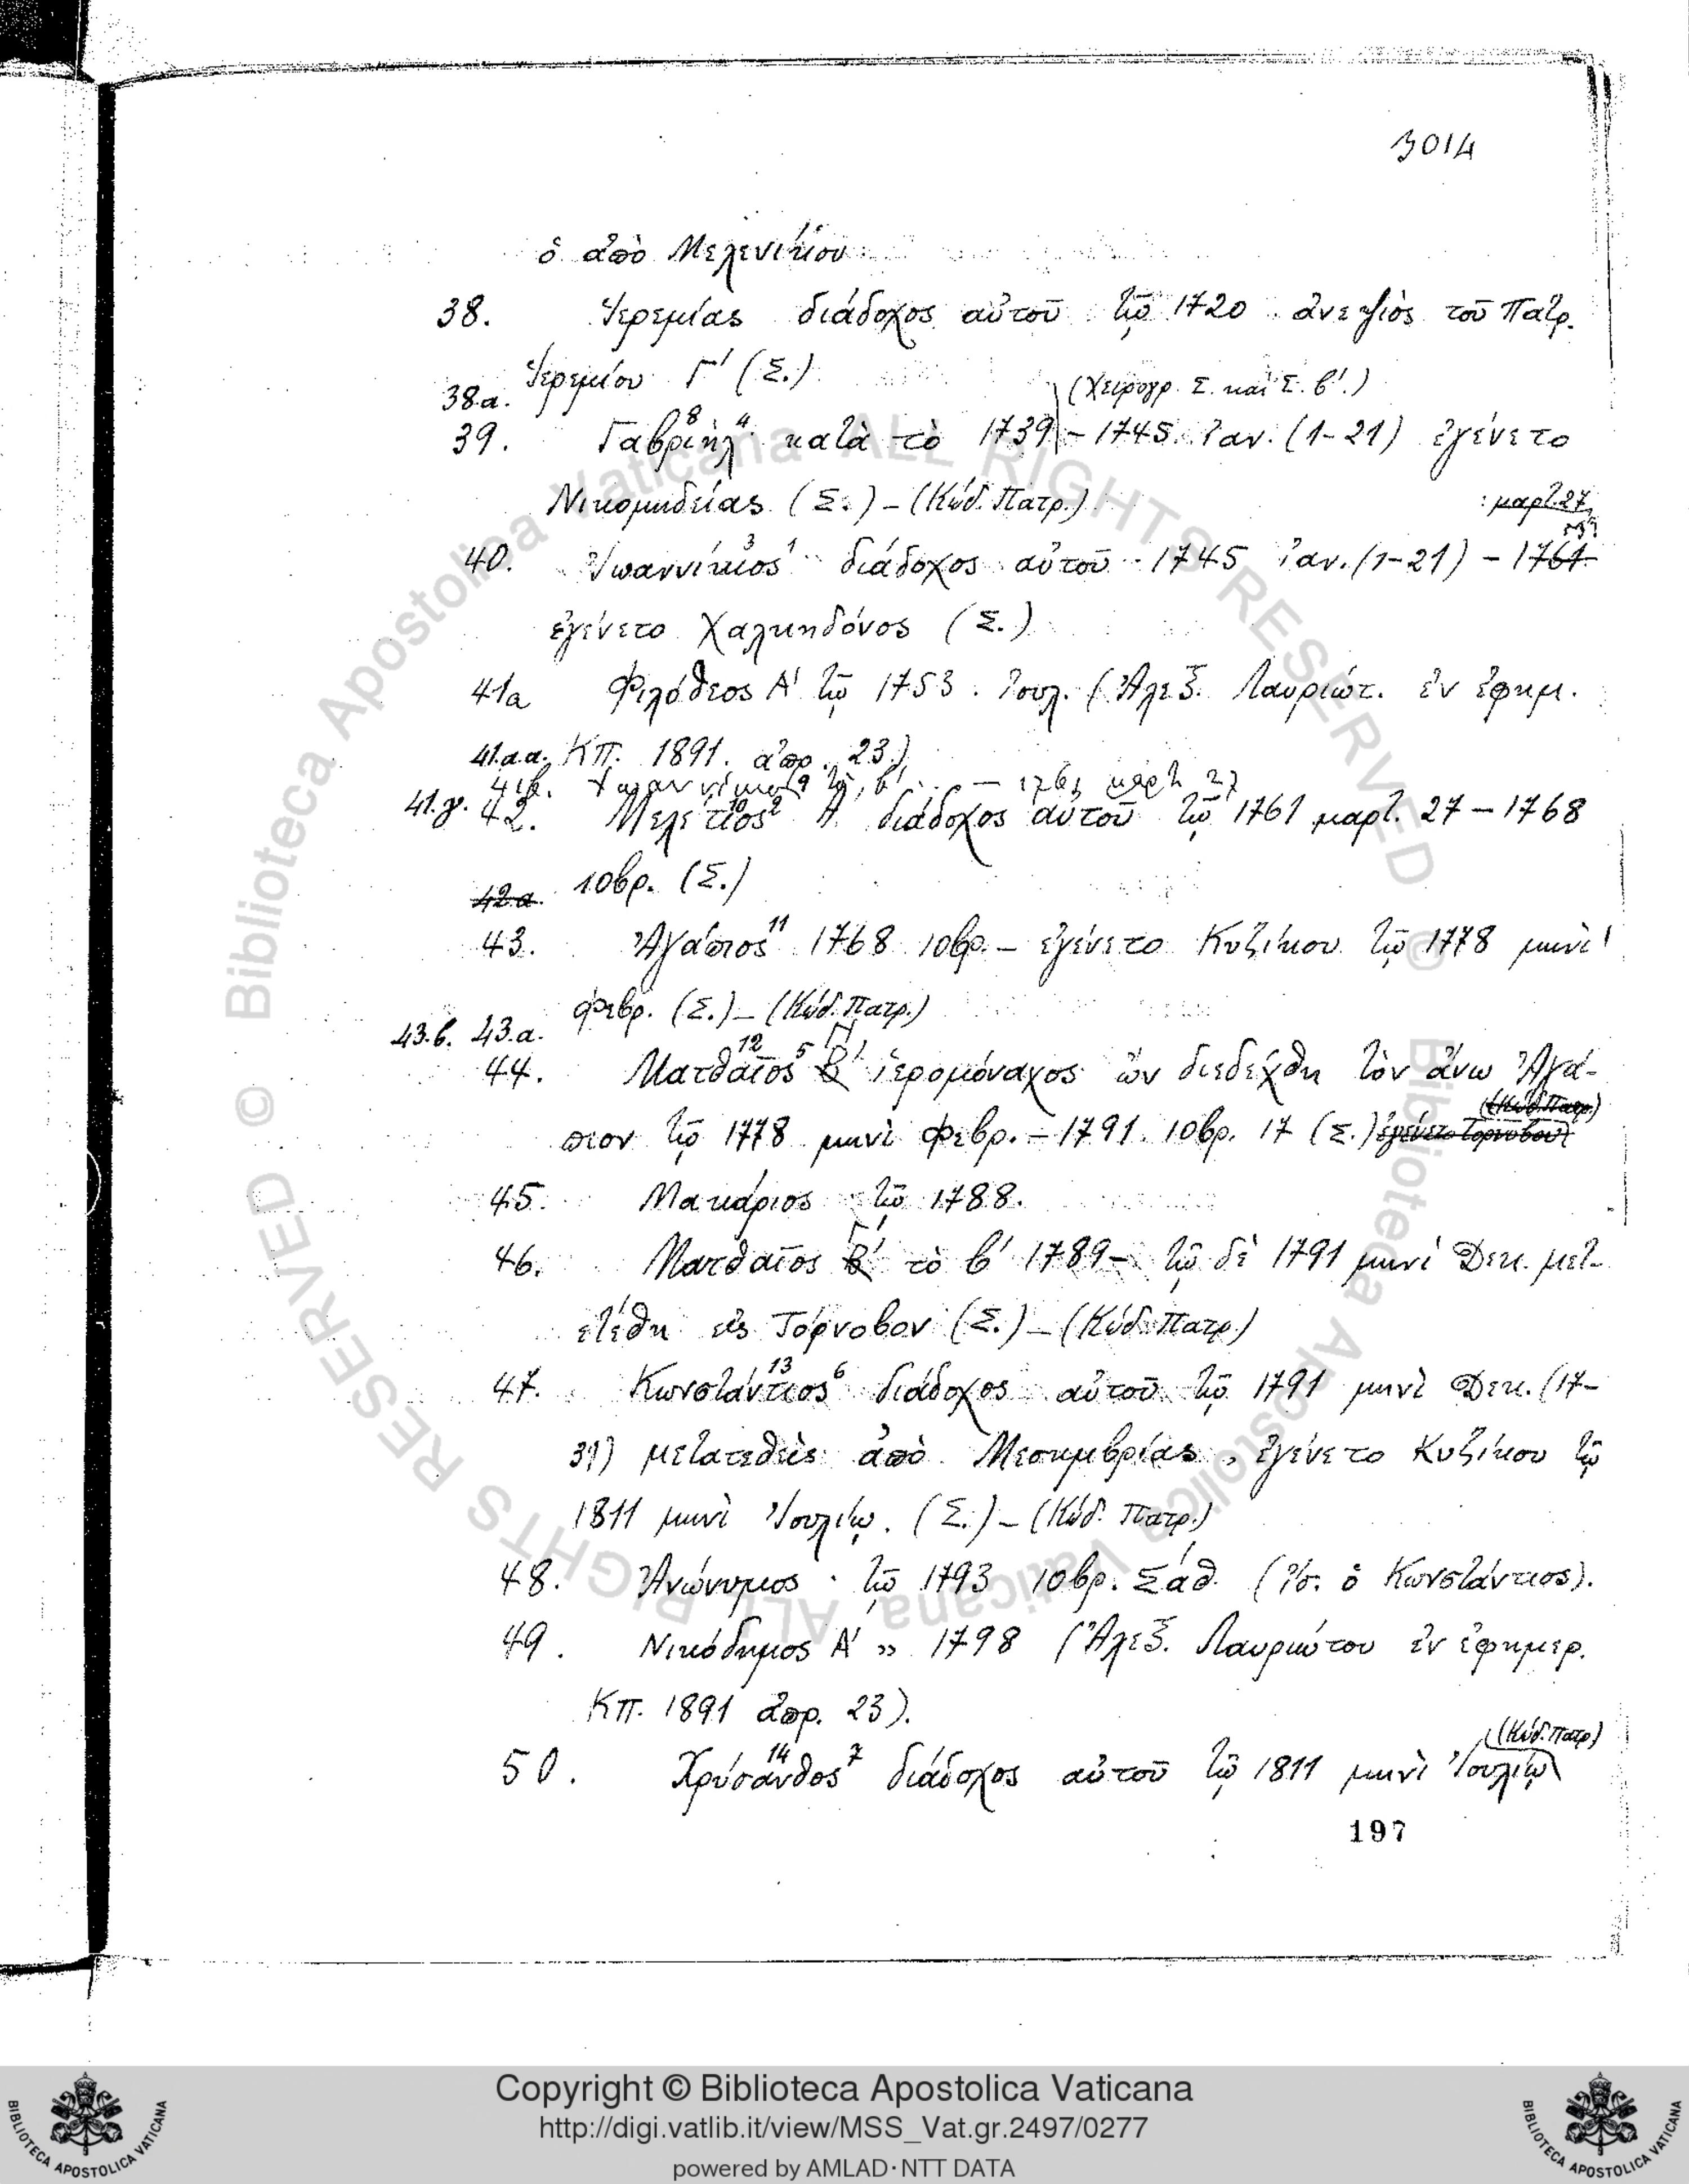 3014
ὁ ἀπὸ Μελενίκου
38. Ἱερεμίας διάδοχος αὐτοῦ τῷ 1720 ἀνεψιὸς τοῦ Πατρ.
Ἱερεμίου Γ' (Σ.)
38.α. (Χειρογρ. Σ. καὶ Σ. β'.)
39. Γαβριὴλ 8 4 κατὰ τὸ 1739 – 1745 Ἰαν. (1-21) ἐγένετο
Νικομηδείας (Σ.) – (Κώδ. Πατρ.) : μαρτ. 27
40. Ἰωαννίκιος 3 1 διάδοχος αὐτοῦ 1745 Ἰαν. (1-21) – 1761
ἐγένετο Χαλκηδόνος (Σ.)
41α Φιλόθεος Α' τῷ 1753 Ἰουλ. (Ἀλεξ. Λαυριώτ. ἐν ἐφημ.
41.α.α. ΚΠ. 1891. ἀπρ. 23.)
41β. Ἰωαννίκιος 9 τὸ β' – 1761 μαρτ 27
41.γ. 42. Μελέτιος 10 2 Α' διάδοχος αὐτοῦ τῷ 1761 μαρτ. 27 – 1768
10βρ. (Σ.)
42α
43. Ἀγάπιος 11 1768 10βρ. – ἐγένετο Κυζίκου τῷ 1778 μηνὶ
Φεβρ. (Σ.) – (Κώδ. Πατρ.)
43.β. 43.α.
44. Ματθαῖος 12 5 Β' Γ' ἱερομόναχος ὢν διεδέχθη τὸν ἄνω Ἀγά-
πιον τῷ 1778 μηνὶ Φεβρ. – 1791. 10βρ. 17 (Σ.) ἐγένετο Τορνόβου (Κώδ. Πατρ.)
45. Μακάριος τῷ 1788.
46. Ματθαῖος Β' Γ' τὸ β' 1789 – τῷ δὲ 1791 μηνὶ Δεκ. μετ-
ετέθη εἰς Τόρνοβον (Σ.) – (Κώδ. Πατρ)
47. Κωνστάντιος 13 6 διάδοχος αὐτοῦ τῷ 1791 μηνὶ Δεκ. (17-
31) μετατεθεὶς ἀπὸ Μεσημβρίας, ἐγένετο Κυζίκου τῷ
1811 μηνὶ Ἰουλίῳ. (Σ.) – (Κώδ. Πατρ.)
48. Ἀνώνυμος τῷ 1793 10βρ. Σάθ. (ἴσ. ὁ Κωνστάντιος).
49. Νικόδημος Α' » 1798 (Ἀλεξ. Λαυριώτου ἐν ἐφημερ.
ΚΠ. 1891 ἀπρ. 23).
50. Χρύσανθος 14 7 διάδοχος αὐτοῦ τῷ 1811 μηνὶ Ἰουλίῳ (Κώδ. Πατρ)
197
© Biblioteca Apostolica Vaticana ALL RIGHTS RESERVED © Biblioteca Apostolica Vaticana ALL RIGHTS RESERVED
Copyright © Biblioteca Apostolica Vaticana
http://digi.vatlib.it/view/MSS_Vat.gr.2497/0277
powered by AMLAD·NTT DATA
BIBLIOTECA APOSTOLICA VATICANA
BIBLIOTECA APOSTOLICA VATICANA